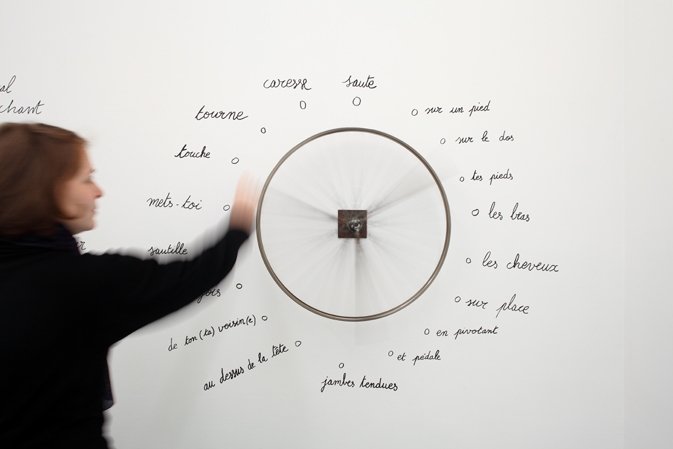 al
chant
caresse
saute
tourne
sur un pied
sur le dos
touche
tes pieds
mets-toi
les bras
sautille
les cheveux
sur place
de ton(ta) voisin(e)
en pivotant
au dessus de la tête
et pédale
jambes tendues